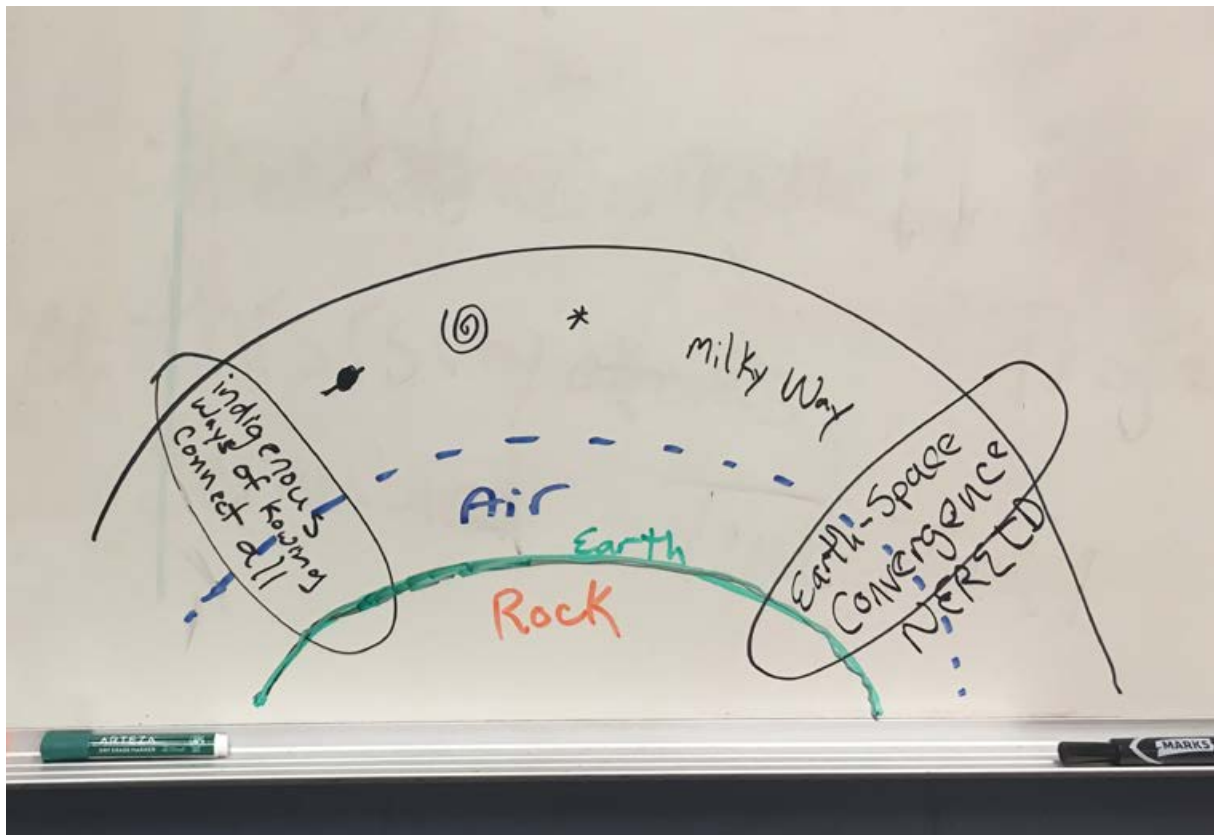 Milky Way
indigenous
ways of Kowing
Connect all
Air
Earth
Rock
Earth-Space
Convergence
NEREID
ARTEZA
DRY ERASE MARKER
MARKS